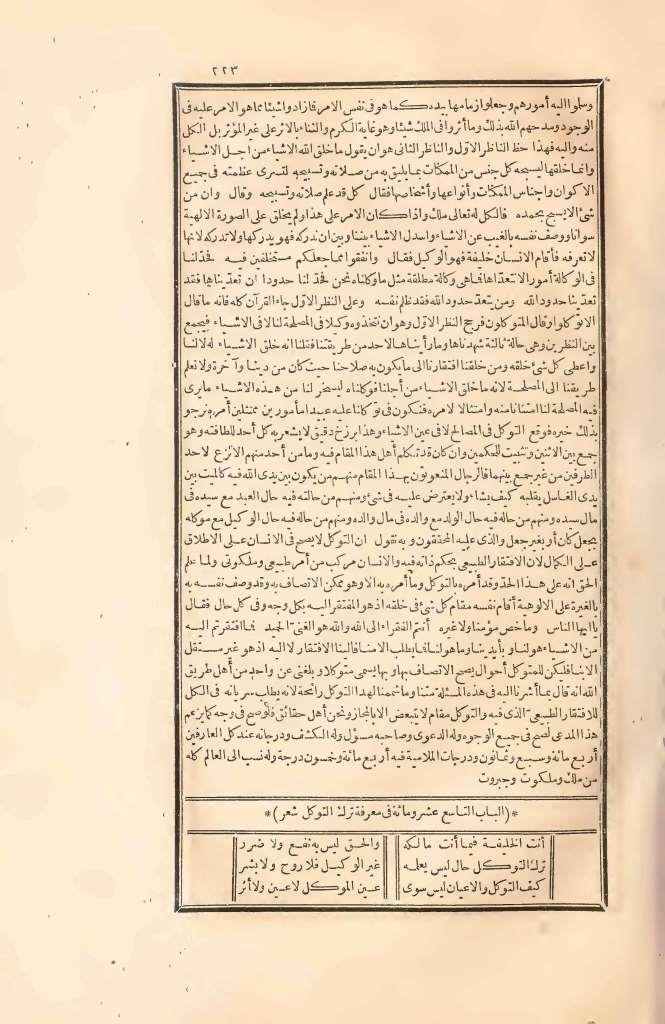 ٢٢٣
وسلموا اليه أمورهم وجعلوا زمامها بيده كما هو في نفس الامر فازادوا شيئا مما هو الامر عليه فى
الوجود ومدحهم الله بذلك وما أثروا فى الملك شيئا وهو غاية الكرم والثناء بالاثر على غير المؤثر بل الكل
منه واليه فهذا حظ الناظر الاول والناظر الثانى هو ان يقول ما خلق الله الاشياء من أجل الاشياء
وانما خلقها ليسبحه كل جنس من الممكنات بما يليق به من صلاته وتسبيحه لتسرى عظمته فى جميع
الاكوان وأجناس الممكنات وأنواعها وأشخاصها فقال كل قد علم صلاته وتسبيحه وقال وان من
شئ الا يسبح بحمده فالكل له تعالى ملك واذا كان الامر على هذا ولم يخلق على الصورة الالهية
سوانا ووصف نفسه بالغيب عن الاشياء واسدل الاشياء بيننا وبين ان ندركه فهو يدركها ولا تدركه لانها
لا تعرفه فأقام الانسان خليفة فهو الوكيل فقال وأنفقوا مما جعلكم مستخلفين فيه فحد لنا
فى الوكالة أمورا لا نتعداها فما هى وكالة مطلقة مثل ما وكلناه نحن فحد لنا حدودا ان تعديناها فقد
تعدينا حدود الله ومن يتعد حدود الله فقد ظلم نفسه وعلى النظر الاول جاء القرآن كله فانه ما قال
الا توكلوا وقال المتوكلون فرجح النظر الاول وهو ان نتخذه وكيلا فى المصلحة لنا لا فى الاشياء فيجمع
بين النظرين وهى حالة ثالثة شهدناها وما رأيناها لاحد من طريقتنا فقلنا انه خلق الاشياء له لا لنا
واعطى كل شئ خلقه ومن خلقنا افتقارنا الى ما يكون به صلاحنا حيث كان من دنيا وآخرة ولا نعلم
طريقنا الى المصلحة لانه ما خلق الاشياء من أجلنا فوكلناه ليسخر لنا من هذه الاشياء ما يرى
فيه المصلحة لنا امتنانا منه وامتثالا لامره فنكون فى توكلنا عليه عبيدا مأمورين ممتثلين أمره نرجو
بذلك خيره فوقع التوكل فى المصالح لا فى عين الاشياء وهذا برزخ دقيق لا يشعر به كل أحد للطافته وهو
جمع بين الاثنين وتثبيت للحكمين وان كان قد تكلم أهل هذا المقام فيه وما من أحد منهم الا نزع لاحد
الطرفين من غير جمع بينهما فالرجال المنعوتون بهذا المقام منهم من يكون بين يدى الله فيه كالميت بين
يدى الغاسل يقلبه كيف يشاء ولا يعترض عليه فى شئ ومنهم من حالته فيه حال العبد مع سيده فى
مال سيده ومنهم من حاله فيه حال الولد مع والده فى مال والده ومنهم من حاله فيه حال الوكيل مع موكله
بجعل كان أو بغير جعل والذى عليه المحققون وبه نقول ان التوكل لا يصح فى الانسان على الاطلاق
على الكمال لان الافتقار الطبيعى بحكم ذاته فيه والانسان مركب من أمر طبيعى وملكوتى ولما علم
الحق انه على هذا الحد وقد أمره بالتوكل وما أمره به الا وهو ممكن الاتصاف به وقد وصف نفسه به
بالغيرة على الالوهية أقام نفسه مقام كل شئ فى خلقه اذ هو المفتقر اليه بكل وجه وفى كل حال فقال
يا أيها الناس وما خص مؤمنا ولا غيره أنتم الفقراء الى الله والله هو الغنى الحميد فما افتقرتم اليه
من الاشياء هو لنا وبأيدينا وما هو لنا فما يطلب الا منا فالينا الافتقار لا اليه اذ هو غير مستقل
الا بنا فليكن للمتوكل أحوال يصح الاتصاف بها وبها يسمى متوكلا وبلغنى عن واحد من أهل طريق
الله انه قال بما أشرنا اليه فى هذه المسئلة متنا وما شممنا لهذا التوكل رائحة لانه يطلب سريانه فى الكل
للافتقار الطبيعى الذى فيه والتوكل مقام لا يتبعض الا بالمجاز ونحن أهل حقائق فلو صح فى وجه كما يزعم
هذا المدعى لصح فى جميع الوجوه وله الدعوى وصاحبه مسؤل وله الكشف ودرجاته عند كل العارفين
أربع مائة وسبع وثمانون ودرجات الملامية فيه أربع مائة وخمسون درجة وله نسب الى العالم كله
من ملك وملكوت وجبروت
*(الباب التاسع عشر ومائة فى معرفة ترك التوكل شعر)*
أنت الخليفة فيما أنت مالكه والحق ليس به نفع ولا ضرر
ترك التوكل حال ليس يعلمه غير الوكيل فلا روح ولا بشر
كيف التوكل والاعيان ليس سوى عين الموكل لا عين ولا أثر